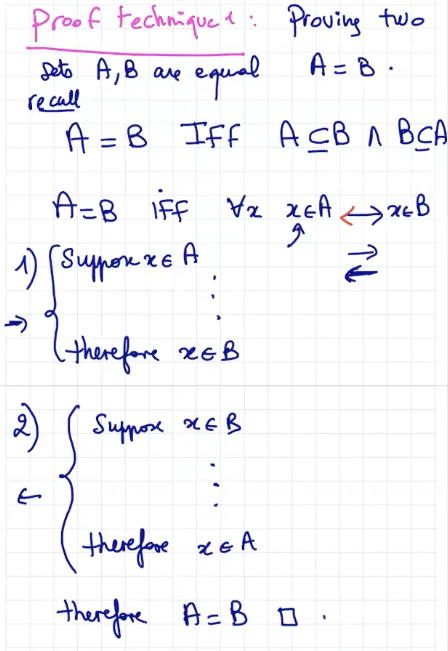 Proof technique 1: Proving two
sets A, B are equal A = B.
recall
A = B IFF A ⊆ B ∧ B ⊆ A
A = B iff ∀x x ∈ A ⟷ x ∈ B
→
←
1) Suppose x ∈ A
⋮
→
therefore x ∈ B
2) Suppose x ∈ B
⋮
←
therefore x ∈ A
therefore A = B □.